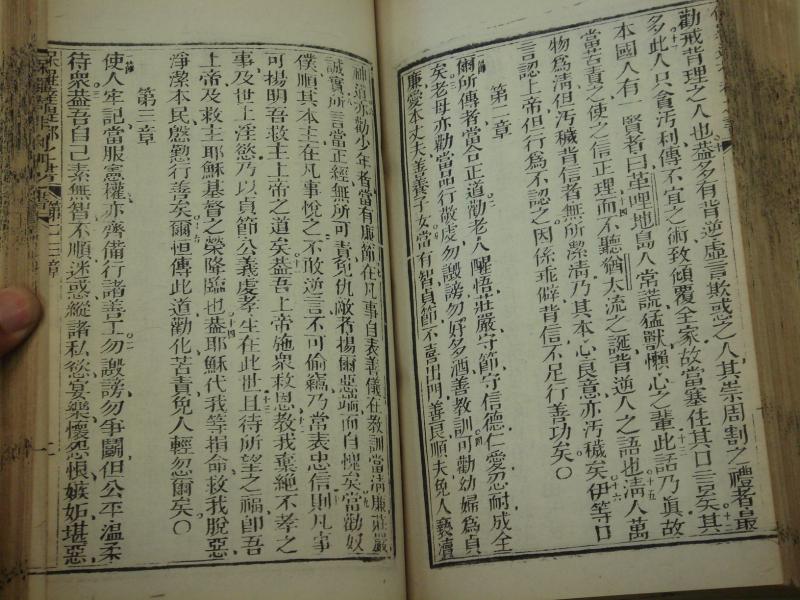 勸戒背理之人也蓋多有背逆虛言欺惑之人其崇周割之禮者最
多此人只貪污利傳不宜之術致傾覆全家故當塞住其口言矣其
本國人有一賢者曰革哩地島人常謊猛獸懶心之輩此話乃真故
當苦責之使之信正理而不聽猶太流之誕背逆人之語也清人萬
物為清但污穢背信者無所潔清乃其本心良意亦污穢矣伊等口
言認上帝但行為不認之因係乖僻背信不足行善功矣〇
第二章
爾所傳者當合正道勸老人醒悟莊嚴守節守信德仁愛忍耐成全
矣老母亦勸當品行敬虔勿譭謗勿好多酒善教訓可勸幼婦為貞
廉愛本丈夫善養子女當有智貞節不喜出門善良順夫免人褻瀆
神道亦勸少年者當有廉節在凡事自表善儀在教訓當清廉莊嚴
誠實所言當正經無所可責免仇敵者揚爾惡端而自愧矣當勸奴
僕順其本主在凡事悅之不敢逆言不可偷竊乃當表忠信則凡事
可揚明吾救主上帝之道矣蓋吾上帝施眾救恩教我棄絕不孝之
事及世上淫慾乃以貞節公義虔孝生在此世且待所望之福即吾
上帝及救主耶穌基督之榮降臨也蓋耶穌代我等捐命救我脫惡
淨潔本民慇懃行善矣爾恒傳此道勸化苦責免人輕忽爾矣〇
第三章
使人牢記當服憲權亦齊備行諸善工勿譭謗勿爭鬬但公平溫柔
待眾蓋吾自己素無智不順迷惑縱諸私慾宴樂懷怨恨嫉妬堪惡